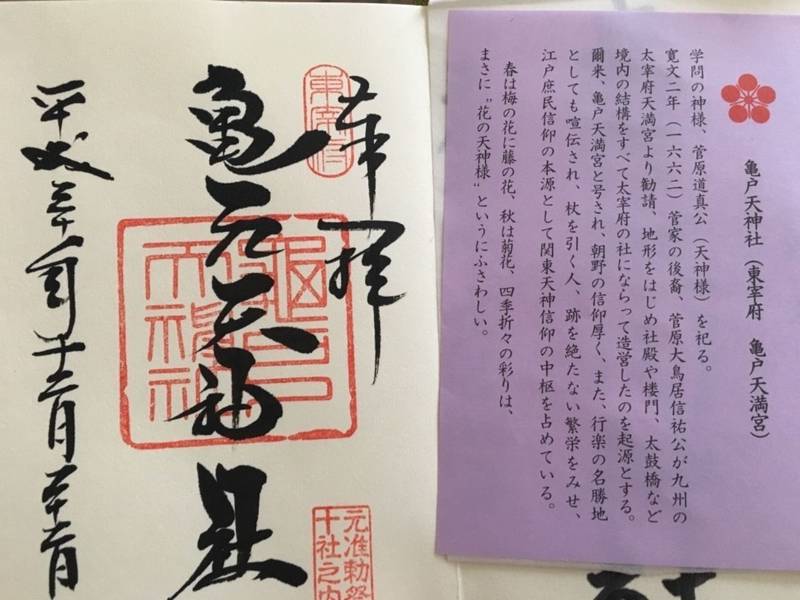 亀戸天神社（東宰府　亀戸天満宮）
学問の神様、菅原道真公（天神様）を祀る。
寛文二年（一六六二）菅家の後裔、菅原大鳥居信祐公が九州の
太宰府天満宮より勧請、地形をはじめ社殿や楼門、太鼓橋など
境内の結構をすべて太宰府の社にならって造営したのを起源とする。
爾来、亀戸天満宮と号され、朝野の信仰厚く、また、行楽の名勝地
としても喧伝され、杖を引く人、跡を絶たない繁栄をみせ、
江戸庶民信仰の本源として関東天神信仰の中枢を占めている。
春は梅の花に藤の花、秋は菊花、四季折々の彩りは、
まさに〝花の天神様〟というにふさわしい。
奉拝
東宰府
元准勅祭
十社之内
亀戸天神社
平成三十年十二月